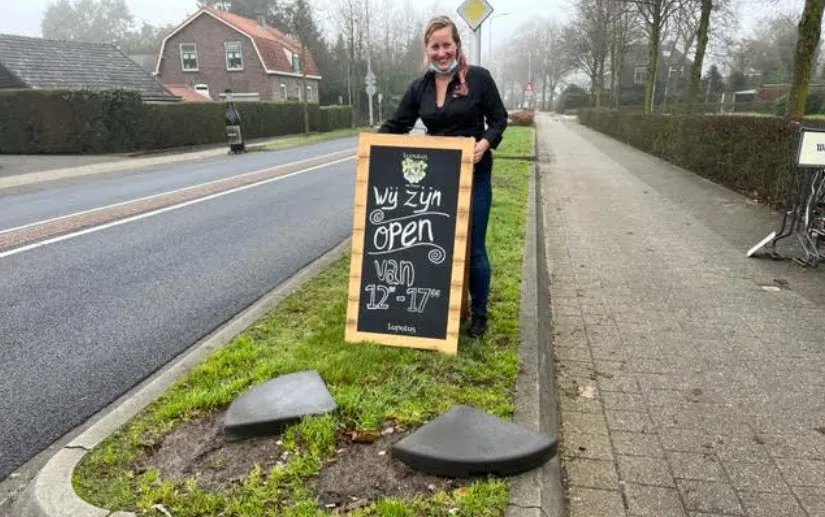 Lupulus
Wij zijn
open
van
12⁰⁰ - 17⁰⁰
Lupulus